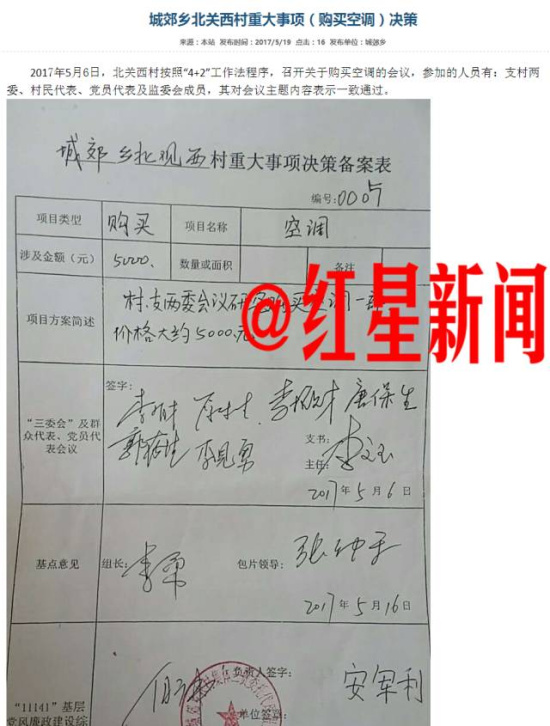 城郊乡北关西村重大事项（购买空调）决策
来源：本站 发布时间：2017/5/19 点击：16 发布单位：城郊乡
2017年5月6日，北关西村按照“4+2”工作法程序，召开关于购买空调的会议，参加的人员有：支村两
委、村民代表、党员代表及监委会成员，其对会议主题内容表示一致通过。
城郊乡北观西村重大事项决策备案表
编号：0005
项目类型 购买 项目名称 空调
涉及金额（元） 5000. 数量或面积 备注
项目方案简述
村支两委会议研
购买
价格大约5000元
@红星新闻
“三委会”及群
众代表、党员代
表会议
签字：
唐保生
李见勇
支书：
主任：
2017年5月6日
基点意见
组长：
包片领导：
2017年5月16日
“11141”基层
党风廉政建设综
负责人签字：
安军利
单位签章：